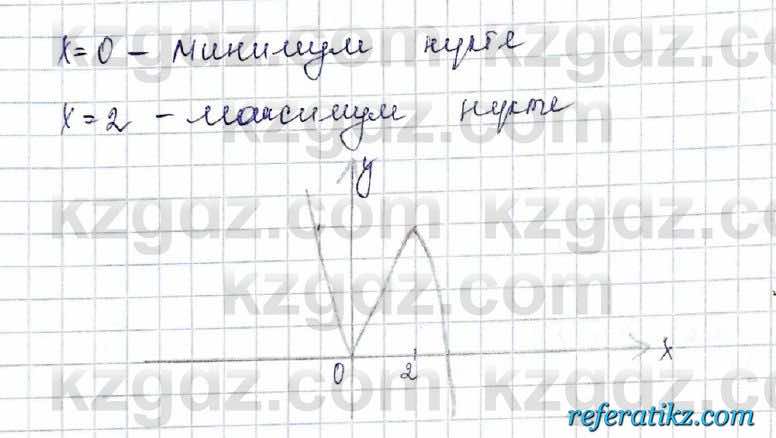 x=0 - минимум нүкте
x=2 - максимум нүкте
y
x
0 2
kzgdz.com kzgdz.com
kzgdz.com
kzgdz.com kzgdz.com
kzgdz.com
kzgdz.com kzgdz.com
referatikz.com